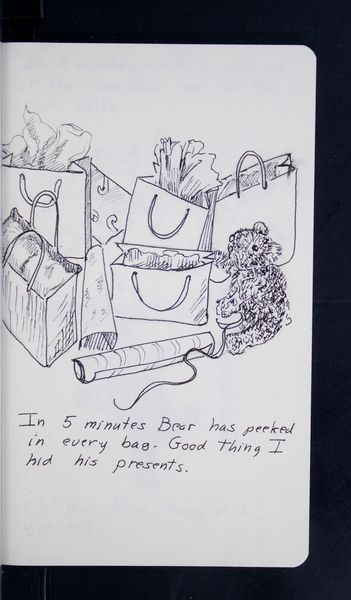 In 5 minutes Bear has peeked
in every bag. Good thing I
hid his presents.